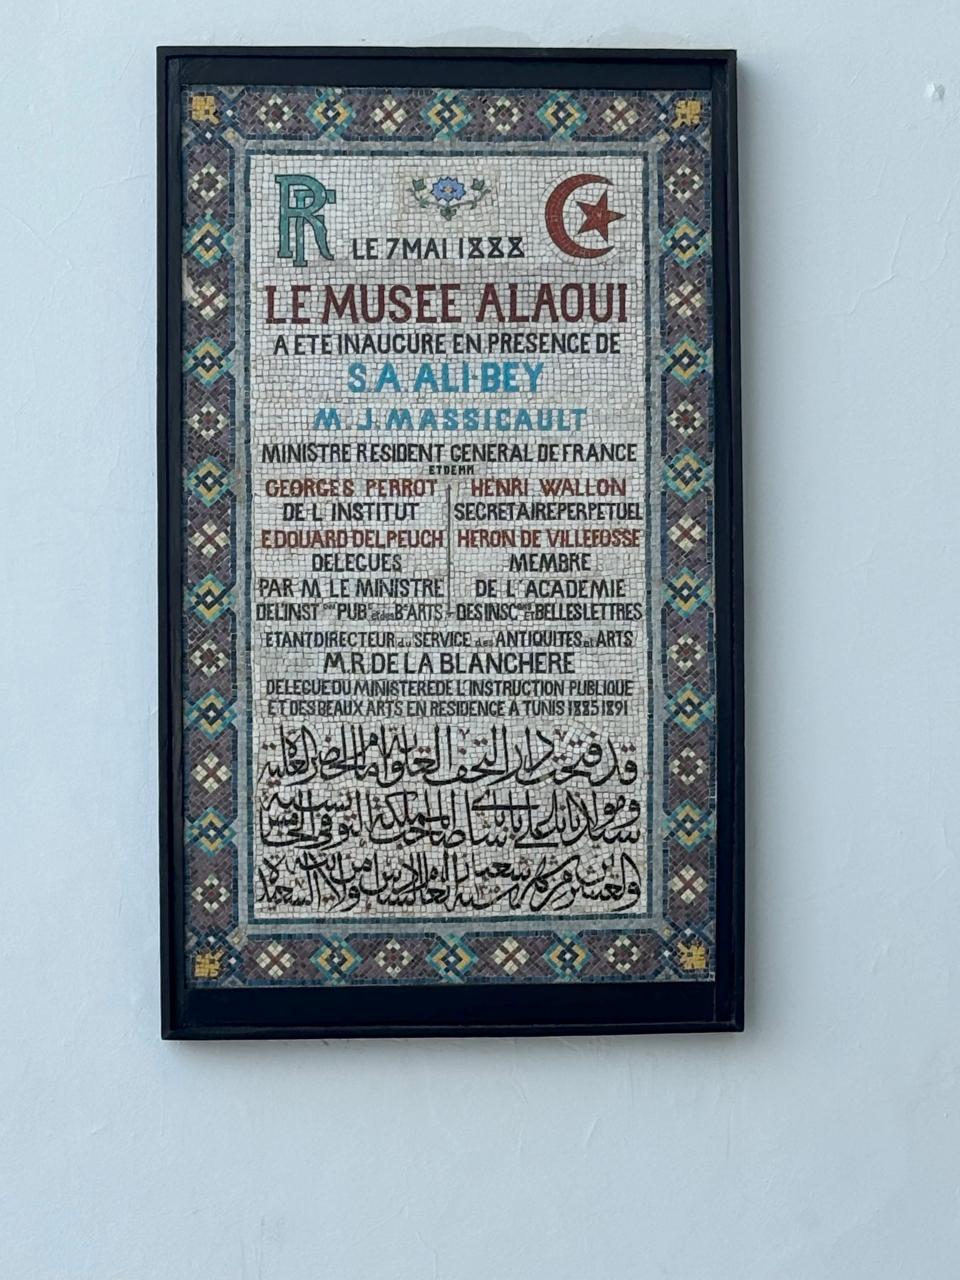 RF
LE 7 MAI 1888
LE MUSEE ALAOUI
A ETE INAUGURE EN PRESENCE DE
S.A ALI BEY
M. J. MASSICAULT
MINISTRE RESIDENT GENERAL DE FRANCE
ET DE MM
GEORGES PERROT HENRI WALLON
DE L INSTITUT SECRETAIRE PERPETUEL
EDOUARD DELPEUCH HERON DE VILLEFOSSE
DELEGUES MEMBRE
PAR M LE MINISTRE DE L'ACADEMIE
DE L'INST ON PUB E et des B X ARTS DES INSC ONS ET BELLES LETTRES
ETANT DIRECTEUR du SERVICE des ANTIQUITES et ARTS
M.R. DE LA BLANCHERE
DELEGUE DU MINISTERE DE L'INSTRUCTION PUBLIQUE
ET DES BEAUX ARTS EN RESIDENCE A TUNIS 1885 1891
قد فتحت دار التحف العلوية امام الحضرة العلية
علي باي باشا صاحب المملكة التونسية
والعشرين من شعبان سنة